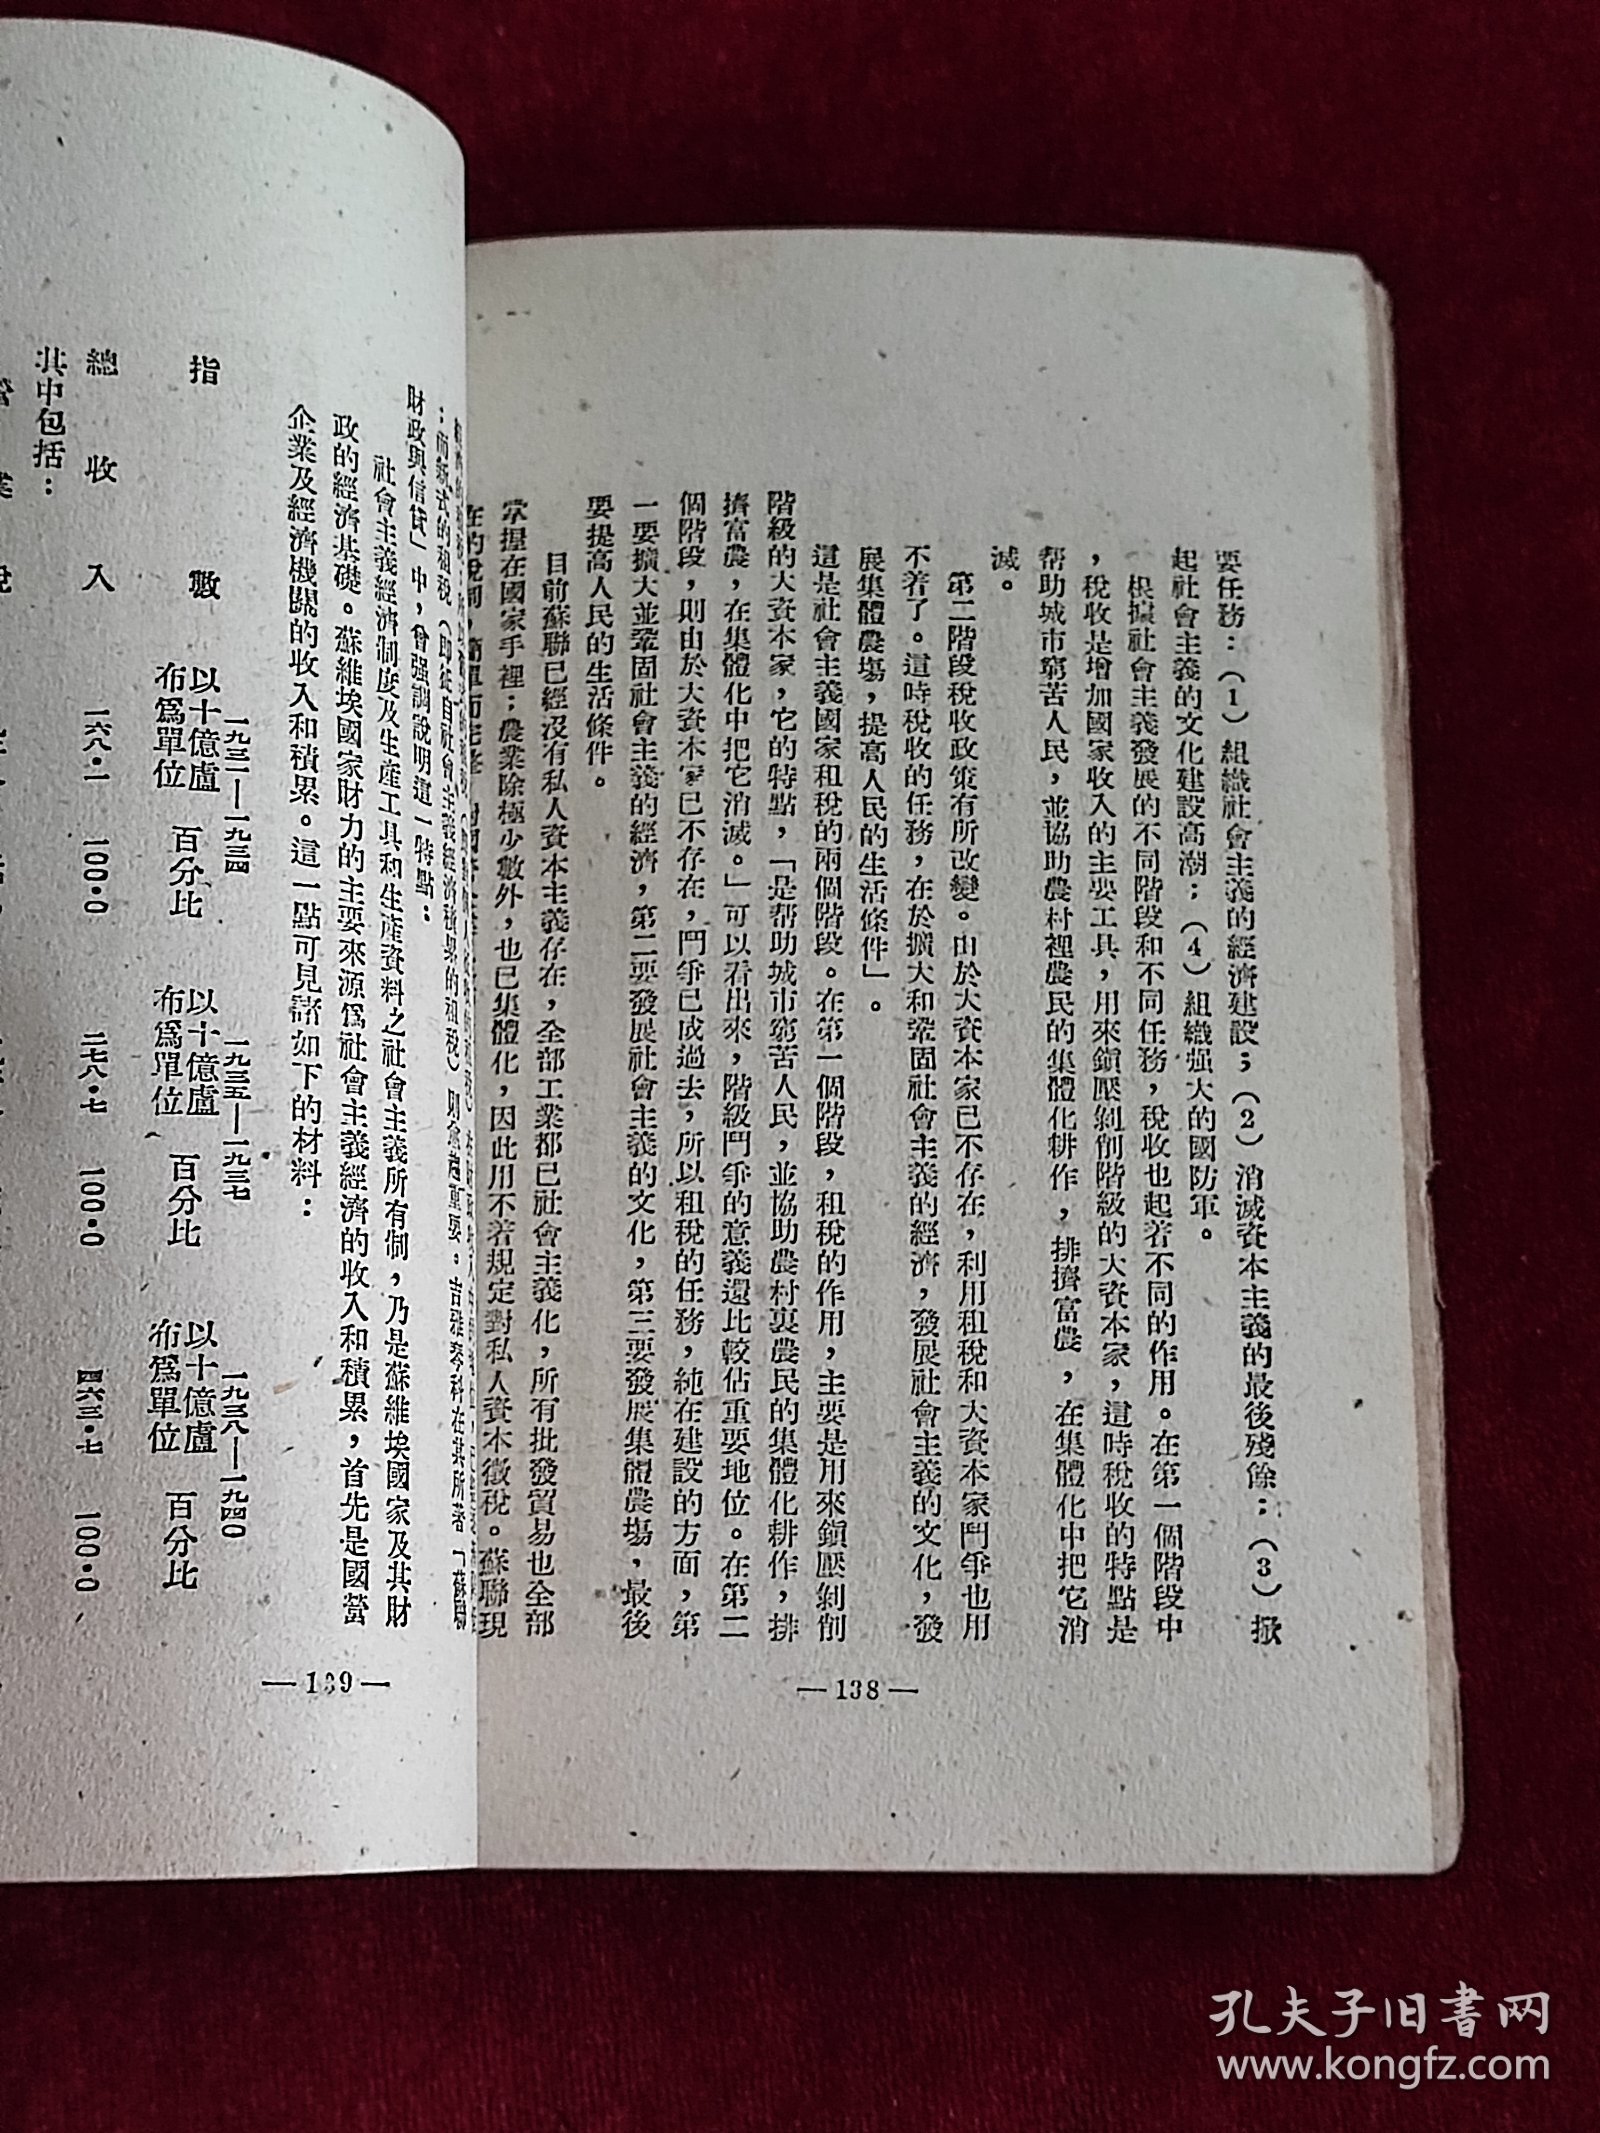 要任務：（1）組織社會主義的經濟建設；（2）消滅資本主義的最後殘餘；（3）掀
起社會主義的文化建設高潮；（4）組織强大的國防軍。
根據社會主義發展的不同階段和不同任務，稅收也起着不同的作用。在第一個階段中
，稅收是增加國家收入的主要工具，用來鎮壓剝削階級的大資本家，這時稅收的特點是
帮助城市窮苦人民，並協助農村裡農民的集體化耕作，排擠富農，在集體化中把它消
滅。
第二階段稅收政策有所改變。由於大資本家已不存在，利用租稅和大資本家鬥爭也用
不着了。這時稅收的任務，在於擴大和鞏固社會主義的經濟，發展社會主義的文化，發
展集體農塲，提高人民的生活條件」。
這是社會主義國家租稅的兩個階段。在第一個階段，租稅的作用，主要是用來鎮壓剝削
階級的大資本家，它的特點，「是帮助城市窮苦人民，並協助農村裏農民的集體化耕作，排
擠富農，在集體化中把它消滅。」可以看出來，階級鬥爭的意義還比較佔重要地位。在第二
個階段，則由於大資本家已不存在，鬥爭已成過去，所以租稅的任務，純在建設的方面，第
一要擴大並鞏固社會主義的經濟，第二要發展社會主義的文化，第三要發展集體農塲，最後
要提高人民的生活條件。
目前蘇聯已經沒有私人資本主義存在，全部工業都已社會主義化，所有批發貿易也全部
掌握在國家手裡；農業除極少數外，也已集體化，因此用不着規定對私人資本徵稅。蘇聯現
在的稅制，簡單而完善
—138—
；而新式的租稅（即征自社會主義經濟積累的租稅）則愈趨重要。吉雅琴科在其所著「蘇聯
財政與信貸」中，曾强調說明這一特點：
社會主義經濟制度及生產工具和生產資料之社會主義所有制，乃是蘇維埃國家及其財
政的經濟基礎。蘇維埃國家財力的主要來源爲社會主義經濟的收入和積累，首先是國營
企業及經濟機關的收入和積累。這一點可見諸如下的材料：
一九三一—一九三四 一九三五—一九三七 一九三八—一九四〇
指數 以十億盧布爲單位 百分比 以十億盧布爲單位 百分比 以十億盧布爲單位 百分比
總收入 一六八·一 一〇〇·〇 二七八·七 一〇〇·〇 四六三·七 一〇〇·〇
其中包括：
—139—
孔夫子旧書网
www.kongfz.com